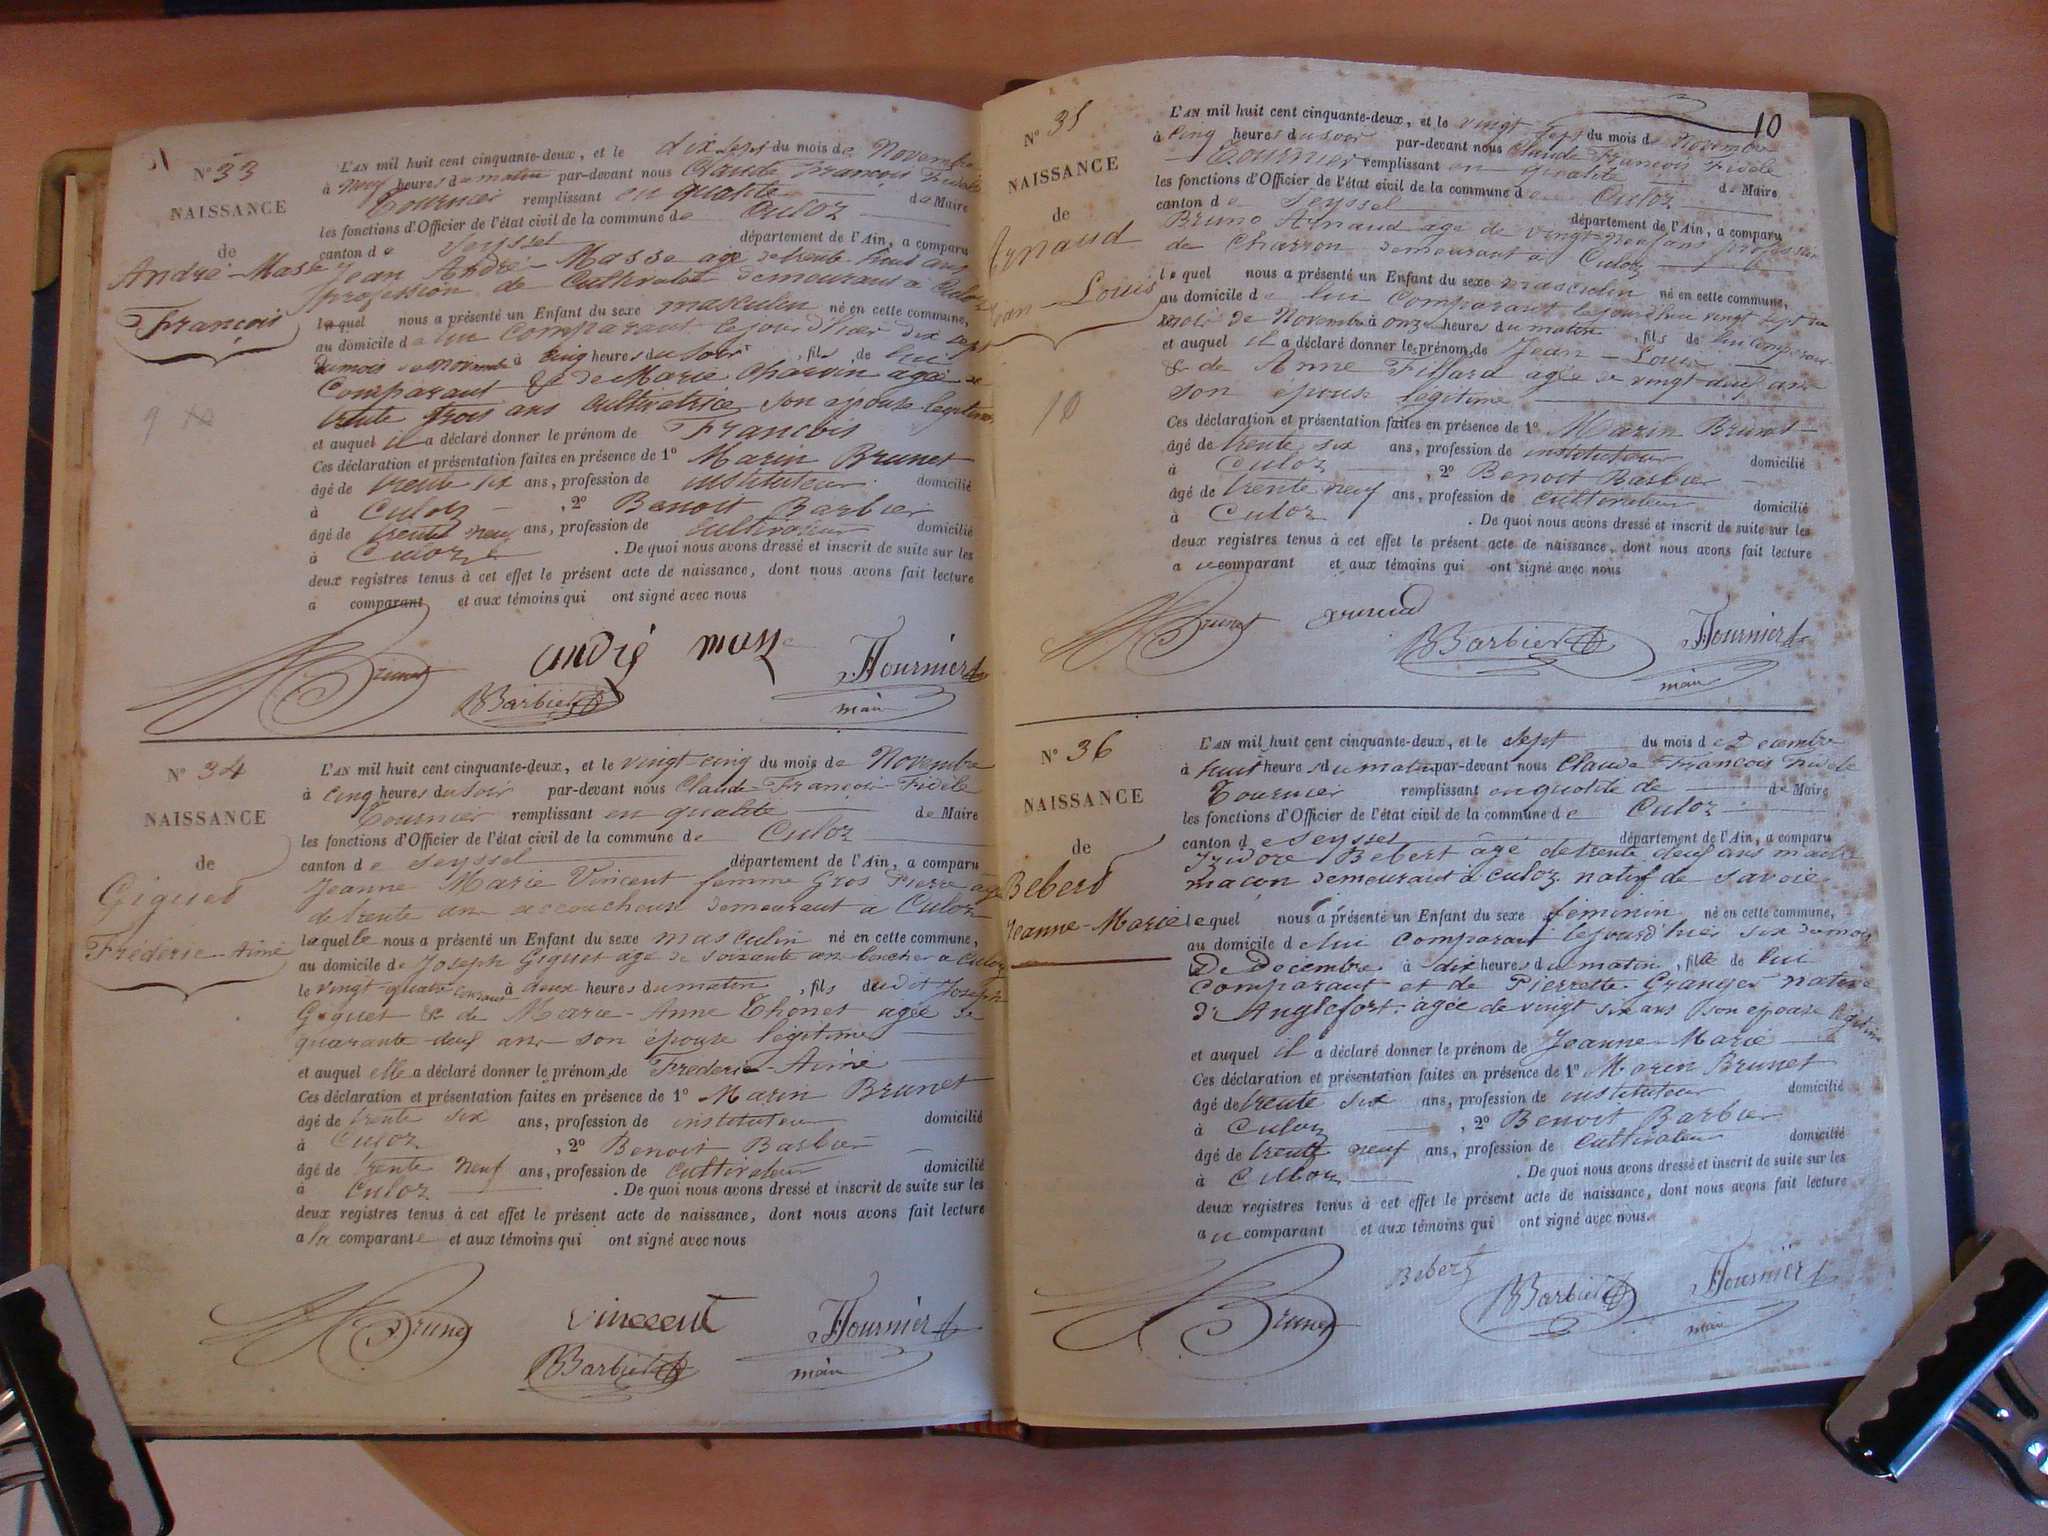 N° 33
NAISSANCE
de
André-Masse
François
L'AN mil huit cent cinquante-deux, et le dix sept du mois de Novembre
à neuf heures du matin par-devant nous Claude François Fidèle
Tournier remplissant en qualité de Maire
les fonctions d'Officier de l'état civil de la commune de Culoz
canton de Seyssel département de l'Ain, a comparu
Jean André-Masse agé de trente huit ans
profession de Cultivateur demeurant à Culoz
lequel nous a présenté un Enfant du sexe masculin né en cette commune,
au domicile de lui comparant le jour d'hier dix sept
du mois de Novembre à cinq heures du soir, fils de lui
Comparant & de Marie Charvin agée de
trente trois ans cultivatrice son épouse légitime
et auquel il a déclaré donner le prénom de François
Ces déclaration et présentation faites en présence de 1° Marin Brunet
âgé de trente six ans, profession de instituteur domicilié
à Culoz , 2° Benoit Barbier
âgé de trente neuf ans, profession de cultivateur domicilié
à Culoz . De quoi nous avons dressé et inscrit de suite sur les
deux registres tenus à cet effet le présent acte de naissance, dont nous avons fait lecture
a comparant et aux témoins qui ont signé avec nous
Brunet andré masse Tournier
Barbier maire
N° 34
NAISSANCE
de
Giguet
Fréderic-Aimé
L'AN mil huit cent cinquante-deux, et le vingt cinq du mois de Novembre
à cinq heures du soir par-devant nous Claude-François-Fidèle
Tournier remplissant en qualité de Maire
les fonctions d'Officier de l'état civil de la commune de Culoz
canton de Seyssel département de l'Ain, a comparu
Jeanne Marie Vincent femme Gros Pierre agée
de trente ans accoucheuse demeurant à Culoz
laquelle nous a présenté un Enfant du sexe masculin né en cette commune,
au domicile de Joseph Giguet agé de soixante ans boucher à Culoz
le vingt quatre courant à deux heures du matin, fils dudit Joseph
Giguet & de Marie-Anne Thonet agée de
quarante deux ans son épouse légitime
et auquel elle a déclaré donner les prénoms de Fréderic-Aimé
Ces déclaration et présentation faites en présence de 1° Marin Brunet
âgé de trente six ans, profession de instituteur domicilié
à Culoz , 2° Benoit Barbier
âgé de trente neuf ans, profession de cultivateur domicilié
à Culoz . De quoi nous avons dressé et inscrit de suite sur les
deux registres tenus à cet effet le présent acte de naissance, dont nous avons fait lecture
a la comparante et aux témoins qui ont signé avec nous
Brunet vincent Tournier
Barbier maire
10
N° 35
NAISSANCE
de
Arnaud
Jean-Louis
10
L'AN mil huit cent cinquante-deux, et le vingt sept du mois de Novembre
à cinq heures du soir par-devant nous Claude François Fidèle
Tournier remplissant en qualité de Maire
les fonctions d'Officier de l'état civil de la commune de Culoz
canton de Seyssel département de l'Ain, a comparu
Bruno Arnaud age de vingt neuf ans profession
de Charron demeurant à Culoz
lequel nous a présenté un Enfant du sexe masculin né en cette commune,
au domicile de lui comparant le jourd'hui vingt sept du
mois de Novembre à onze heures du matin, fils de lui comparant
& de Anne Fillard agée de vingt deux ans
son épouse légitime
et auquel il a déclaré donner les prénoms de Jean-Louis
Ces déclaration et présentation faites en présence de 1° Marin Brunet
âgé de trente six ans, profession de instituteur domicilié
à Culoz , 2° Benoit Barbier
âgé de trente neuf ans, profession de cultivateur domicilié
à Culoz . De quoi nous avons dressé et inscrit de suite sur les
deux registres tenus à cet effet le présent acte de naissance, dont nous avons fait lecture
au comparant et aux témoins qui ont signé avec nous
Brunet Arnaud Barbier Tournier
maire
N° 36
NAISSANCE
de
Bebert
Jeanne-Marie
L'AN mil huit cent cinquante-deux, et le sept du mois de Decembre
à huit heures du matin par-devant nous Claude François Fidèle
Tournier remplissant en qualité de de Maire
les fonctions d'Officier de l'état civil de la commune de Culoz
canton de Seyssel département de l'Ain, a comparu
Izidore Bebert âgé de trente deux ans
maçon demeurant à Culoz natif de Savoie
lequel nous a présenté un Enfant du sexe féminin né en cette commune,
au domicile de lui comparant le jourd'hier six du mois
De Decembre à dix heures du matin, fille de lui
comparant et de Pierrette Granger native
d'Anglefort agée de vingt six ans son épouse légitime
et auquel il a déclaré donner le prénom de Jeanne-Marie
Ces déclaration et présentation faites en présence de 1° Marin Brunet
âgé de trente six ans, profession de instituteur domicilié
à Culoz , 2° Benoit Barbier
âgé de trente neuf ans, profession de cultivateur domicilié
à Culoz . De quoi nous avons dressé et inscrit de suite sur les
deux registres tenus à cet effet le présent acte de naissance, dont nous avons fait lecture
au comparant et aux témoins qui ont signé avec nous.
Brunet Bebert Barbier Tournier
maire